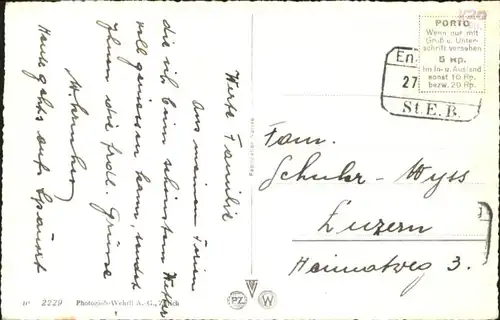 Werte Familie
Aus meinen Ferien
die ich beim schönsten Wetter
voll geniessen kann, sendet
Ihnen die frdl. Grüsse
Heute gehts auf
PORTO
Wenn nur mit
Gruß u. Unter-
schrift versehen
5 Rp.
Im In- u. Ausland
sonst 10 Rp.
bezw. 20 Rp.
En
27
St.E.B.
Fam.
Schuhr-Wyss
Luzern
Heimatweg 3.
2229 Photoglob-Wehrli A. G., Zürich
PZ W